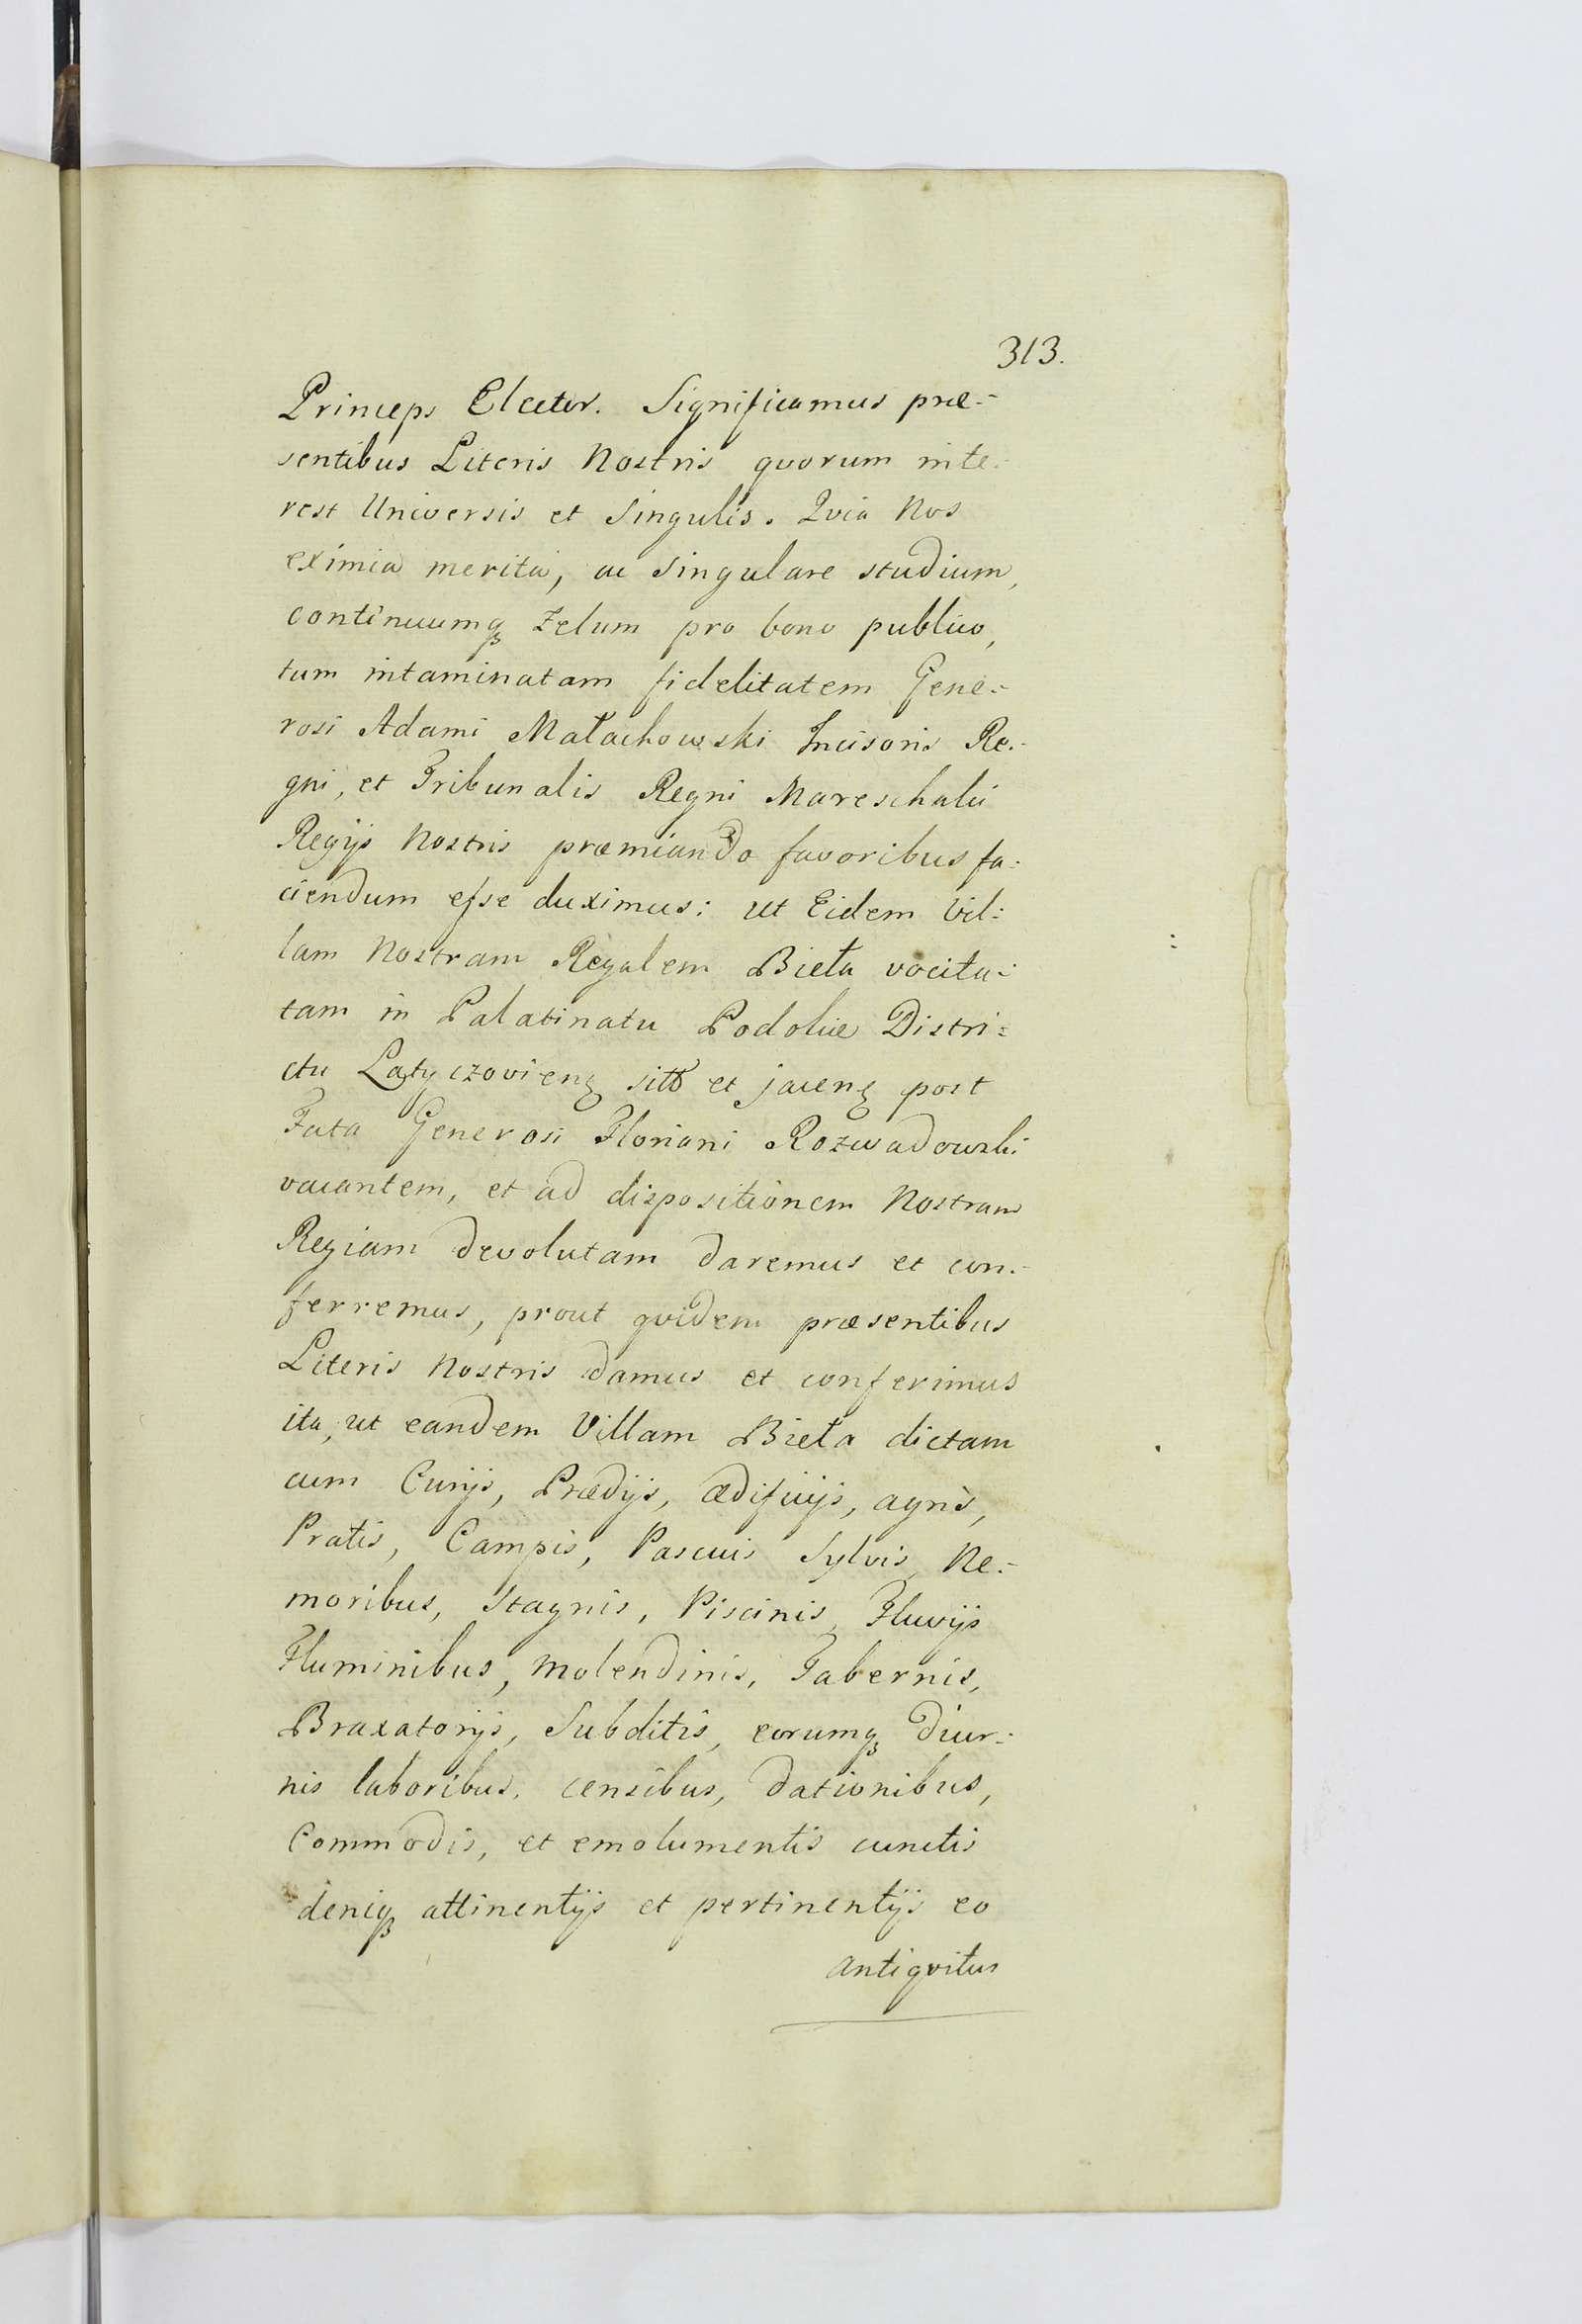 313.
Princeps Elector. Significamus præ-
sentibus Literis Nostris quorum inte-
rest Universis et Singulis. Qvia Nos
eximia merita, ac singulare studium,
continuumq₃ zelum pro bono publico,
tum intaminatam fidelitatem Gene-
rosi Adami Małachowski Incisoris Re-
gni, et Tribunalis Regni Mareschalci
Regijs Nostris præmiando favoribus fa-
ciendum esse duximus: ut Eidem Vil-
lam Nostram Regalem Bieła vocita-
tam in Palatinatu Podoliæ Distri-
ctu Latyczovienȝ sitt et jacenȝ post
Fata Generosi Floriani Rozwadowski
vacantem, et ad dispositionem Nostram
Regiam devolutam daremus et con-
ferremus, prout qvidem præsentibus
Literis Nostris damus et conferimus
ita, ut eandem Villam Bieła dictam
cum Curijs, Prædijs, ædificijs, agris,
Pratis, Campis, Pascuis Sylvis, Ne-
moribus, Stagnis, Piscinis, Fluvijs
Fluminibus, Molendinis, Tabernis,
Braxatorijs, Subditis, eorumq₃ diur-
nis laboribus, censibus, dationibus,
Commodis, et emolumentis cunctis
deniq₃ attinentijs et pertinentijs eo
antiqvitus